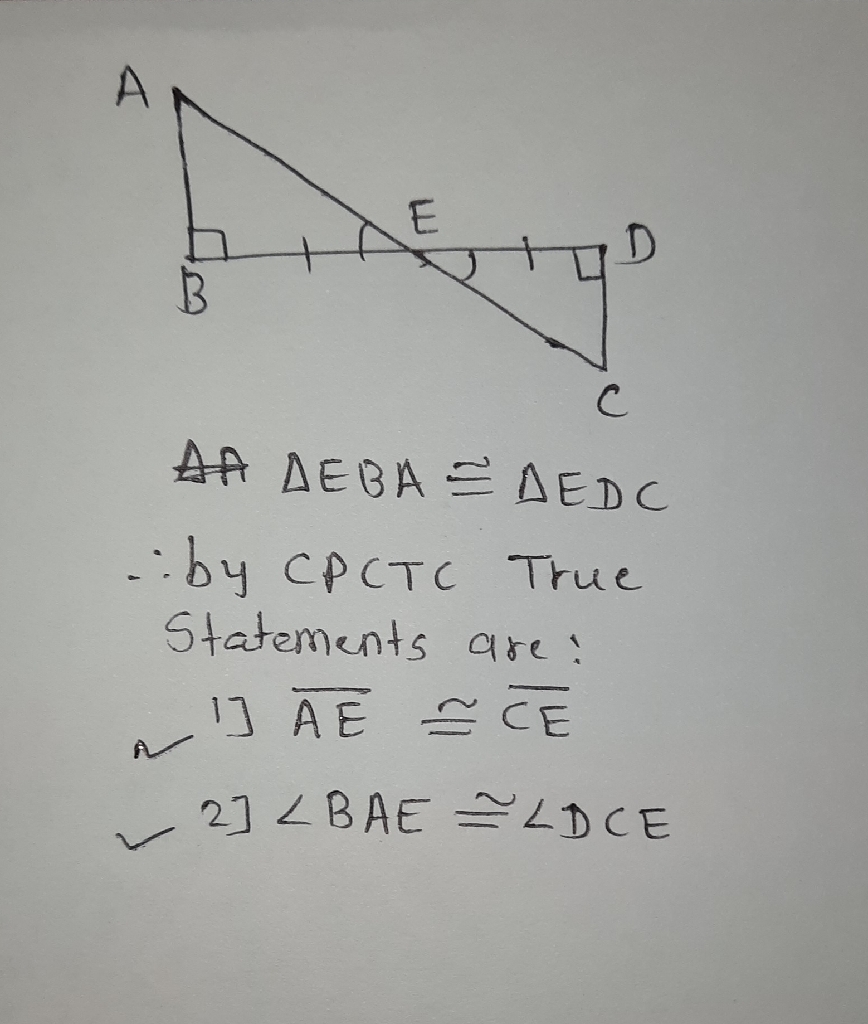 A
E
D
B
C
ΔEBA ≅ ΔEDC
∴ by CPCTC True
Statements are:
1] AE ≅ CE
2] ∠BAE ≅ ∠DCE